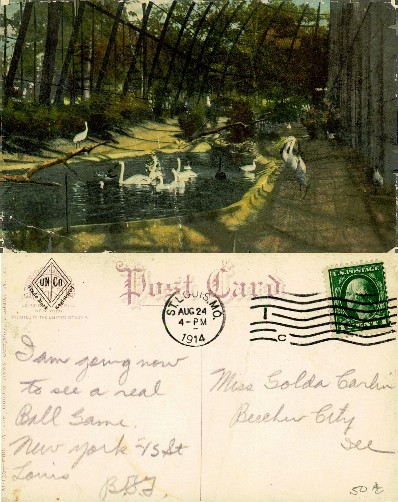 Post Card
UN Co
NEW YORK
ST LOUIS, MO.
AUG 24
4-PM
1914
U.S. POSTAGE
I am going now
to see a real
Ball Game.
New York vs St
Louis
Miss Golda Carlin
Beecher City
Ill
50¢